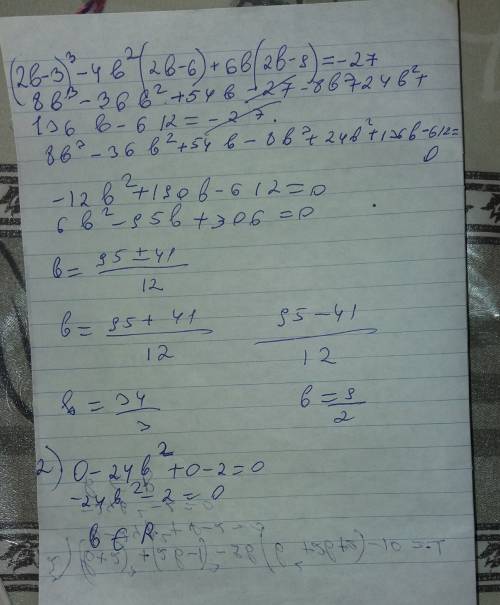 (2b-3)³-4b²(2b-6)+6b(2b-9)=-27
8b³-36b²+54b-27-8b³+24b²+
136b-612=-27.
8b³-36b²+54b-8b³+24b²+136b-612=
0
-12b²+190b-612=0
6b²-95b+306=0
b=95±41/12
b=95+41/12 95-41/12
b=34/3 b=9/2
2) 0-24b²+0-2=0
-24b²-2=0
b∈R